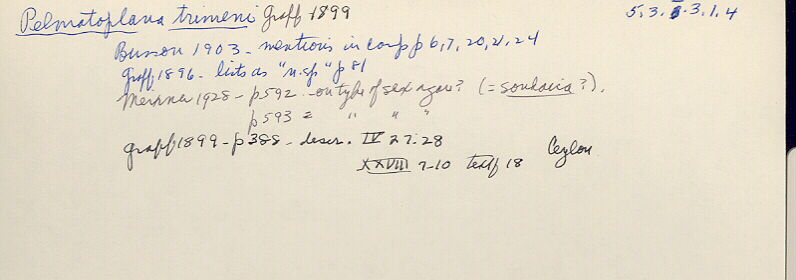 Pelmatoplana trimeni Graff 1899 5.3.5.3.1.4
Busson 1903 - mentions in comp p 6, 7, 20, 21, 24
Graff 1896 - lists as "n.sp" p 81
Meixner 1928 - p592 - on type of sex appar? (= sondaica?).
p 593 = " " "
Graff 1899 - p 388 - descr. IV 27-28 Ceylon
XXVIII 7-10 textf 18